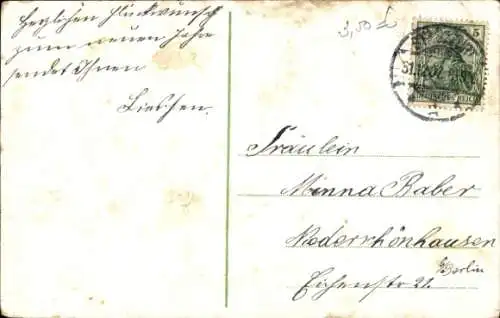 Herzlichen Glückwunsch
zum neuen Jahre
sendet Ihnen
Lieschen.
3,50
5
31.12.07
REICH
Fräulein
Minna Raber
Niederschönhausen
b/Berlin
Eichenstr. 21.